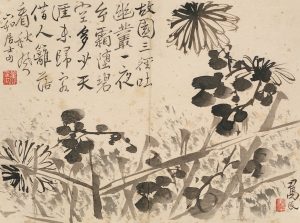 故園三徑吐
幽叢一夜
玄霜墮碧
空多少天
涯未歸客
借人籬落
看秋風